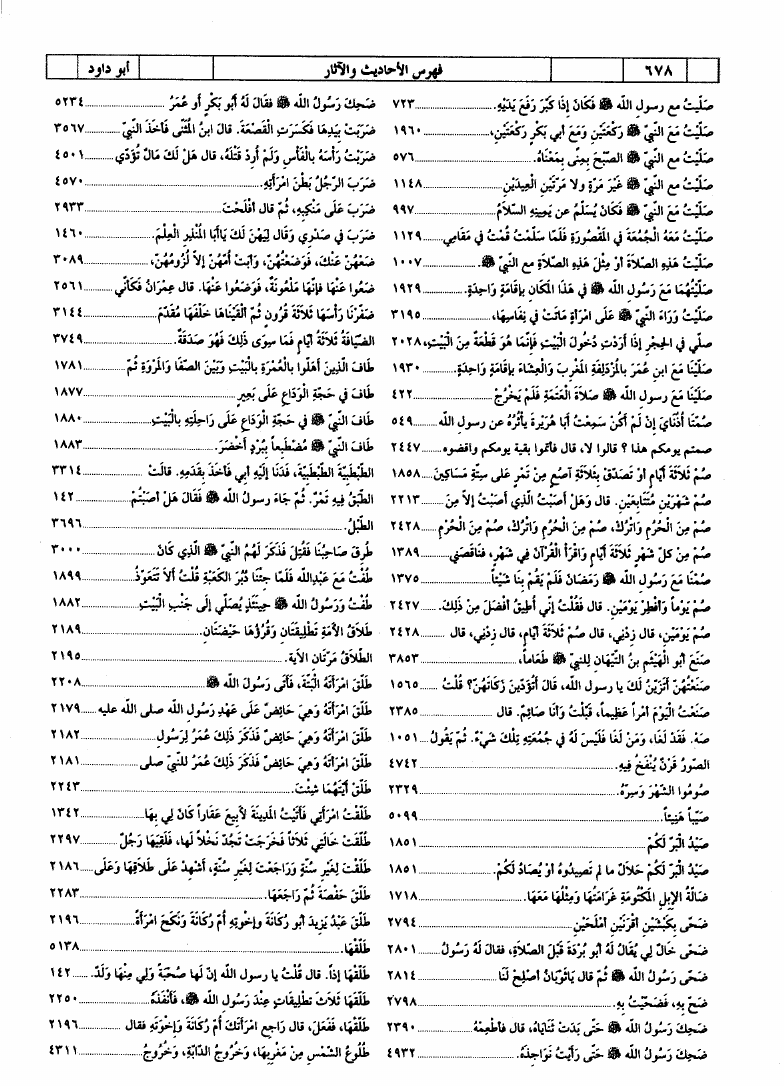 ٦٧٨ فهرس الأحاديث والآثار أبو داود
صَلَّيْتُ مع رسول الله ﷺ فَكَانَ إذَا كَبَّرَ رَفَعَ يَدَيْهِ. ٧٢٣
صَلَّيْتُ مَعَ النَّبيِّ ﷺ رَكْعَتَيْنِ وَمَعَ أبي بَكْرٍ رَكْعَتَيْنِ، ١٩٦٠
صَلَّيْتُ مع النَّبيِّ ﷺ الصُّبْحَ بِمِنًى بِمَعْنَاهُ. ٥٧٦
صَلَّيْتُ مع النَّبيِّ ﷺ غَيْرَ مَرَّةٍ ولا مَرَّتَيْنِ الْعِيدَيْنِ. ١١٤٨
صَلَّيْتُ مَعَ النَّبيِّ ﷺ فَكَانَ يُسَلِّمُ عن يَمِينِهِ السَّلامُ ٩٩٧
صَلَّيْتُ مَعَهُ الْجُمُعَةَ في المَقْصُورَةِ فَلَمَّا سَلَّمْتُ قُمْتُ في مَقَامِي ١١٢٩
صَلَّيْتُ هَذِهِ الصَّلاةَ أوْ مِثْلَ هَذِهِ الصَّلاةِ مع النَّبيِّ ﷺ. ١٠٠٧
صَلَّيْتُهُمَا مَعَ رَسُولِ اللهِ ﷺ في هَذَا المَكَانِ بِإِقَامَةٍ وَاحِدَةٍ. ١٩٢٩
صَلَّيْتُ وَرَاءَ النَّبيِّ ﷺ عَلَى امْرَأةٍ مَاتَتْ في نِفَاسِهَا، ٣١٩٥
صلّي في الحِجْرِ إذَا أرَدْتِ دُخُولَ الْبَيْتِ فإنَّمَا هُوَ قِطْعَةٌ مِنَ الْبَيْتِ، ٢٠٢٨
صَلَّيْنَا مَعَ ابنِ عُمَرَ بالمُزْدَلِفَةِ المَغْرِبَ وَالعِشَاءَ بِإِقَامَةٍ وَاحِدَةٍ. ١٩٣٠
صَلَّيْنَا مَعَ رسول الله ﷺ صَلاةَ الْعَتَمَةِ فَلَمْ يَخْرُجْ ٤٢٢
صُمَّتَا أُذُنَايَ إنْ لَمْ أكُنْ سَمِعْتُ أبَا هُرَيْرَةَ يَأثُرُهُ عن رسول الله ٥٤٩
صمتم يومكم هذا ؟ قالوا لا، قال فأتموا بقية يومكم واقضوه ٢٤٤٧
صُمْ ثَلاثَةَ أيَّامٍ أوْ تَصَدَّقْ بِثَلاثَةِ آصُعٍ مِنْ تَمْرٍ عَلى سِتَّةِ مَسَاكِينَ ١٨٥٨
صُمْ شَهْرَيْنِ مُتَتَابِعَيْنِ. قال وَهَلْ أصَبْتُ الَّذِي أصَبْتُ إلاَّ مِنَ ٢٢١٣
صُمْ مِنَ الْحُرُمِ وَاتْرُكْ، صُمْ مِنَ الْحُرُمِ وَاتْرُكْ، صُمْ مِنَ الْحُرُمِ ٢٤٢٨
صُمْ مِنْ كُلِّ شَهْرٍ ثَلاثَةَ أيَّامٍ وَاقْرَأ الْقُرْآنَ في شَهْرٍ، فَنَاقَصَنِي ١٣٨٩
صُمْنَا مَعَ رَسُولِ الله ﷺ رَمَضَانَ فَلَمْ يَقُمْ بِنَا شَيْئاً ١٣٧٥
صُمْ يَوْماً وَأفْطِرْ يَوْمَيْنِ. قال فَقُلْتُ إنِّي أُطِيقُ أفْضَلَ مِنْ ذَلِكَ. ٢٤٢٧
صُمْ يَوْمَيْنِ، قال زِدْنِي، قال صُمْ ثَلاثَةَ أيَّامٍ، قال زِدْنِي، قال ٢٤٢٨
صَنَعَ أبو الْهَيْثَمِ بنُ التَّيْهَانِ لِلنَّبيِّ ﷺ طَعَاماً، ٣٨٥٣
صَنَعْتُهُنَّ أتَزَيَّنُ لَكَ يا رسول الله، قالَ أتُؤَدِّينَ زَكَاتَهُنَّ؟ قُلْتُ ١٥٦٥
صَنَعْتُ الْيَوْمَ أمْراً عَظِيماً، قَبَّلْتُ وَأنَا صَائِمٌ. قال ٢٣٨٥
صَهْ. فَقَدْ لَغَا، وَمَنْ لَغَا فَلَيْسَ لَهُ في جُمُعَتِهِ تِلْكَ شَيْءٌ. ثُمَّ يَقُولُ ١٠٥١
الصُّورُ قَرْنٌ يُنْفَخُ فِيهِ. ٤٧٤٢
صُومُوا الشَّهْرَ وَسِرَّهُ. ٢٣٢٩
صَيِّباً هَنِيئاً. ٥٠٩٩
صَيْدُ الْبَرِّ لَكُمْ ١٨٥١
صَيْدُ الْبَرِّ لَكُمْ حَلالٌ ما لم تَصِيدُوهُ أوْ يُصَادُ لَكُمْ. ١٨٥١
ضَالَّةُ الإبِلِ المَكْتُومَةِ غَرَامَتُهَا وَمِثْلُهَا مَعَهَا. ١٧١٨
ضَحَّى بِكَبْشَيْنِ أقْرَنَيْنِ أمْلَحَيْنِ. ٢٧٩٤
ضَحَّى خَالٌ لِي يُقَالُ لَهُ أبو بُرْدَةَ قَبْلَ الصَّلاةِ، فقالَ لَهُ رَسُولُ ٢٨٠١
ضَحَّى رَسُولُ الله ﷺ ثُمَّ قال يَاثَوْبَانُ أصْلِحْ لَنَا ٢٨١٤
ضَحِّ بِهِ، فَضَحَّيْتُ بِهِ. ٢٧٩٨
ضَحِكَ رَسُولُ الله ﷺ حَتَّى بَدَتْ ثَنَايَاهُ، قال فأطْعِمْهُ ٢٣٩٠
ضَحِكَ رَسُولُ الله ﷺ حَتَّى رَأيْتُ نَوَاجِذَهُ. ٤٩٣٢
ضَحِكَ رَسُولُ الله ﷺ فقَالَ لَهُ أبُو بَكْرٍ أوْ عُمَرُ ٥٢٣٤
ضَرَبَتْ بِيَدِهَا فَكَسَرَتِ الْقَصْعَةَ. قالَ ابنُ المُثَنَّى فأخَذَ النَّبيُّ ٣٥٦٧
ضَرَبْتُ رَأسَهُ بِالْفَأسِ وَلَمْ أُرِدْ قَتْلَهُ، قال هَلْ لَكَ مَالٌ تُؤَدِّي ٤٥٠١
ضَرَبَ الرَّجُلُ بَطْنَ امْرَأتِهِ. ٤٥٧٠
ضَرَبَ عَلَى مَنْكِبِهِ، ثُمَّ قال أفْلَحْتَ ٢٩٣٣
ضَرَبَ في صَدْرِي وَقال لِيَهْنِ لَكَ يَاأبَا المُنْذِرِ الْعِلْمُ. ١٤٦٠
ضَعْهُنَّ عَنْكَ، فَوَضَعْتُهُنَّ، وَأبَتْ أُمُّهُنَّ إلاَّ لُزُومَهُنَّ، ٣٠٨٩
ضَعُوا عَنْهَا فإنَّهَا مَلْعُونَةٌ، فَوَضَعُوا عَنْهَا. قال عِمْرَانُ فَكَأنِّي ٢٥٦١
ضَفَرْنَا رَأسَهَا ثَلاثَةَ قُرُونٍ ثُمَّ ألْقَيْنَاهَا خَلْفَهَا مُقَدَّمَ ٣١٤٤
الضِّيَافَةُ ثَلاثَةُ أيَّامٍ فَمَا سِوَى ذَلِكَ فَهُوَ صَدَقَةٌ. ٣٧٤٩
طَافَ الَّذِينَ أهَلُّوا بالْعُمْرَةِ بالْبَيْتِ وَبَيْنَ الصَّفَا وَالمَرْوَةِ ثُمَّ ١٧٨١
طَافَ في حَجَّةِ الْوَدَاعِ عَلَى بَعِيرٍ ١٨٧٧
طَافَ النَّبيُّ ﷺ في حَجَّةِ الْوَدَاعِ عَلَى رَاحِلَتِهِ بالْبَيْتِ ١٨٨٠
طَافَ النَّبيُّ ﷺ مُضْطَبِعاً بِبُرْدٍ أخْضَرَ. ١٨٨٣
الطَّبْطَبِيَّةَ الطَّبْطَبِيَّةَ، فَدَنَا إلَيْهِ أبي فأخَذَ بِقَدَمِهِ. قالَتْ ٣٣١٤
الطَّبَقُ فِيهِ تَمْرٌ. ثُمَّ جَاءَ رسولُ الله ﷺ فَقَالَ هَلْ أصَبْتُمْ ١٤٢
الطَّبْلُ. ٣٦٩٦
طُرِقَ صَاحِبُنَا فَقُتِلَ فَذَكَرَ لَهُمُ النَّبيُّ ﷺ الَّذِي كَانَ ٣٠٠٠
طُفْتُ مَعَ عَبْدِالله فَلَمَّا جِئْنَا دُبُرَ الْكَعْبَةِ قُلْتُ ألاَ تَتَعَوَّذُ ١٨٩٩
طُفْتُ وَرَسُولُ الله ﷺ حِينَئِذٍ يُصَلِّي إلَى جَنْبِ الْبَيْتِ ١٨٨٢
طَلاقُ الأمَةِ تَطْلِيقَتَانِ وَقُرُؤُهَا حَيْضَتَانِ. ٢١٨٩
الطَّلاقُ مَرَّتَانِ الآية. ٢١٩٥
طَلَّقَ امْرَأتَهُ الْبَتَّةَ، فَأتَى رَسُولَ الله ﷺ ٢٢٠٨
طَلَّقَ امْرَأتَهُ وَهِيَ حَائِضٌ عَلَى عَهْدِ رَسُولِ الله صلى الله عليه ٢١٧٩
طَلَّقَ امْرَأتَهُ وَهِيَ حَائِضٌ فَذَكَرَ ذَلِكَ عُمَرُ لِرَسُولِ ٢١٨٢
طَلَّقَ امْرَأتَهُ وَهِيَ حَائِضٌ فَذَكَرَ ذَلِكَ عُمَرُ للنَّبيِّ صلى ٢١٨١
طَلِّقْ أيَّتَهُمَا شِئْتَ. ٢٢٤٣
طَلَّقْتُ امْرَأتِي فَأتَيْتُ المَدِينَةَ لأَبِيعَ عَقَاراً كَانَ لِي بِهَا ١٣٤٢
طُلِّقَتْ خَالَتِي ثَلاثاً فَخَرَجَتْ تَجُدُّ نَخْلاً لَهَا، فَلَقِيَهَا رَجُلٌ ٢٢٩٧
طَلَّقْتَ لِغَيْرِ سُنَّةٍ وَرَاجَعْتَ لِغَيْرِ سُنَّةٍ، أشْهِدْ عَلَى طَلاقِهَا وَعَلَى ٢١٨٦
طَلَّقَ حَفْصَةَ ثُمَّ رَاجَعَهَا. ٢٢٨٣
طَلَّقَ عَبْدُ يَزِيدَ أبو رُكَانَةَ وإخْوَتِهِ أُمَّ رُكَانَةَ وَنَكَحَ امْرَأةً ٢١٩٦
طَلِّقْهَا. ٥١٣٨
طَلِّقْهَا إذاً. قال قُلْتُ يا رسول الله إنَّ لَهَا صُحْبَةً وَلِي مِنْهَا وَلَدٌ. ١٤٢
طَلَّقَهَا ثَلاثَ تَطْلِيقَاتٍ عِنْدَ رَسُولِ الله ﷺ، فَأنْفَذَهُ ٢٢٥٠
طَلِّقْهَا، فَفَعَلَ، قال رَاجِعِ امْرَأتَكَ أُمَّ رُكَانَةَ وَإخْوَتِهِ فقال ٢١٩٦
طُلُوعُ الشَّمْسِ مِنْ مَغْرِبِهَا، وَخُرُوجُ الدَّابَّةِ، وَخُرُوجُ ٤٣١١